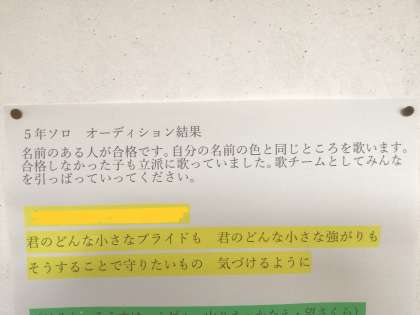 5年ソロ　オーディション結果
名前のある人が合格です。自分の名前の色と同じところを歌います。
合格しなかった子も立派に歌っていました。歌チームとしてみんな
を引っぱっていってください。
君のどんな小さなプライドも　君のどんな小さな強がりも
そうすることで守りたいもの　気づけるように